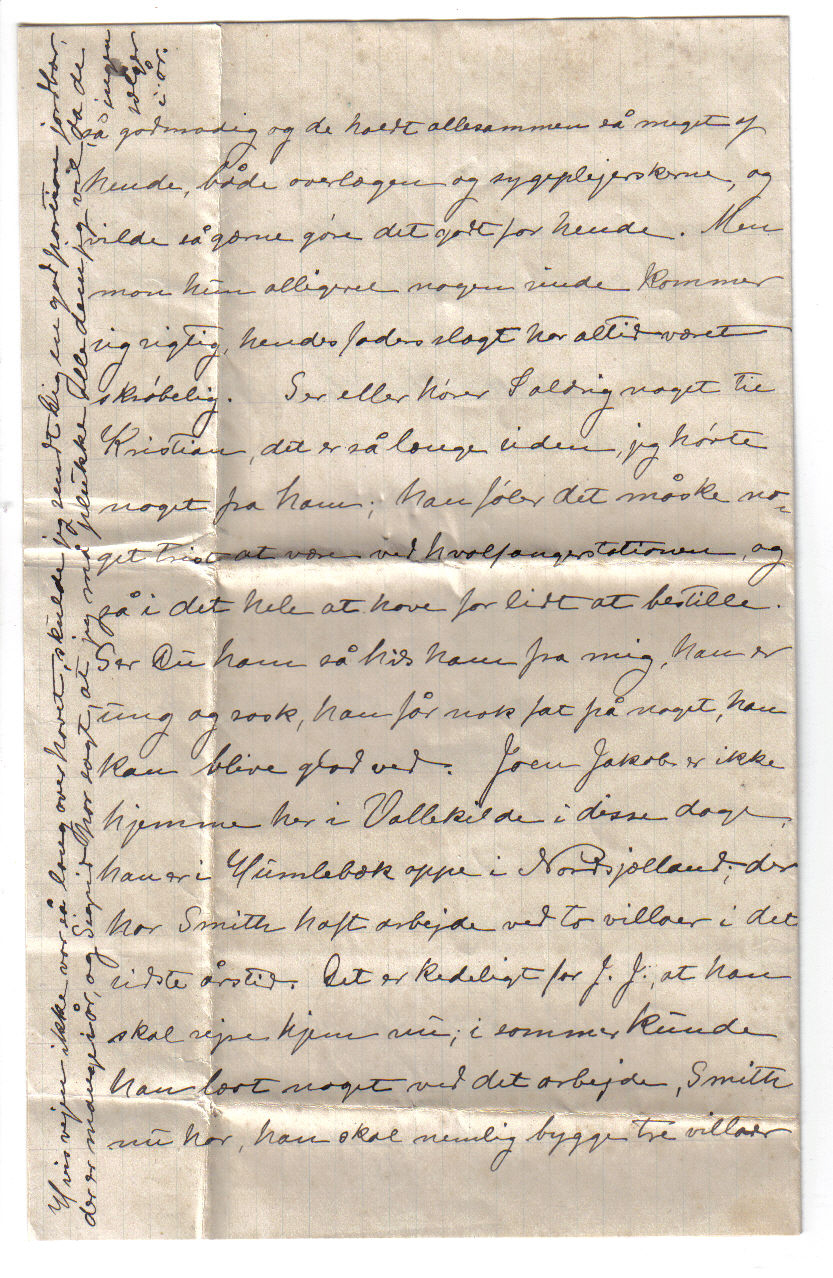 så godmodig og de holdt allesammen så meget af
hende, både overlægen og sygeplejerskerne, og
vilde så gærne göre det godt for hende. Men
mon hun alligevel nogen sinde kommer
sig rigtig, hendes faders slægt har altid været
skröbelig. Ser eller hörer I aldrig noget til
Kristian, det er så længe siden, jeg hörte
noget fra ham; han föler det måske no-
get trist at være ved hvalfangerstationen, og
så i det hele at have for lidt at bestille.
Ser Du ham så hils ham fra mig, han er
ung og rask, han får nok fat på noget, han
kan blive glad ved. Joen Jakob er ikke
hjemme her i Vallekilde i disse dage,
han er i Humlebæk oppe i Nordsjælland; der
har Smith haft arbejde ved to villaer i det
sidste årstid. Det er kedeligt for J. J., at han
skal rejse hjem nu; i sommer kunde
han lært noget ved det arbejde, Smith
nu har, han skal nemlig bygge tre villaer
Hvis vejen ikke var så lang over havet, skulde jeg sendt dig en god portion jordbær,
der er mange i år, og Sigrid har sagt, at jeg må plukke alle dem jeg vil, da de
ingen
sælger
i år.